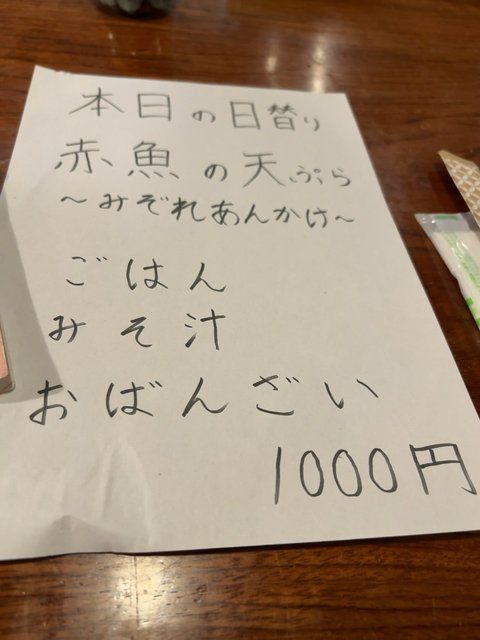 本日の日替り
赤魚の天ぷら
～みぞれあんかけ～
ごはん
みそ汁
おばんざい
1000円